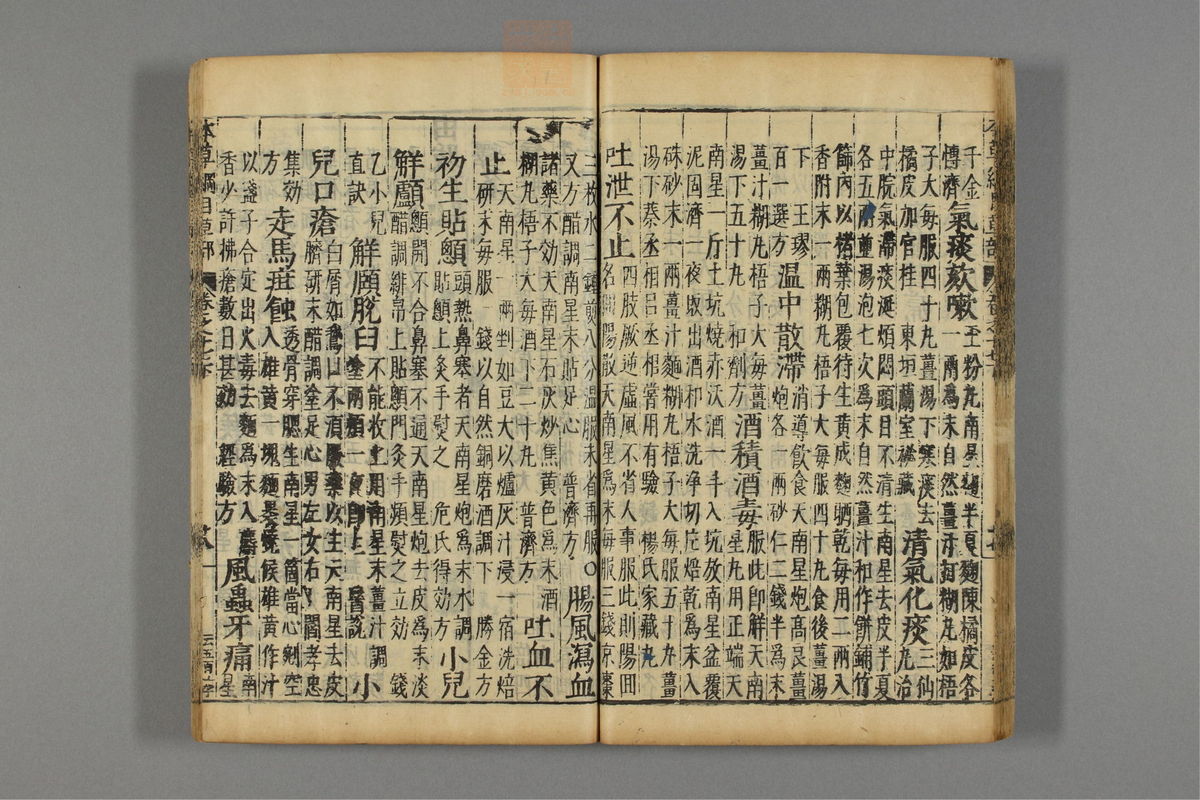 千金
傳濟
氣痰欬嗽
玉粉丸南星麯半夏麯陳橘皮各
一兩爲末自然薑汁打糊丸如梧
子大每服四十丸薑湯下寒痰去
橘皮加官桂 東垣蘭室秘藏
清氣化痰
三仙
丸治
中脘氣滯痰涎煩悶頭目不清生南星去皮半夏
各五兩並湯泡七次爲末自然薑汁和作餅鋪竹
篩內以楮葉包覆待生黄成麯晒乾每用二兩入
香附末一兩糊丸梧子大每服四十丸食後薑湯
下 王璆
百一選方
温中散滯
消導飲食天南星炮高良薑
炮各一兩砂仁二錢半爲末
薑汁糊丸梧子大每薑
湯下五十丸 和劑方
酒積酒毒
服此即解天南
星丸用正端天
南星一斤土坑燒赤沃酒一斗入坑放南星盆覆
泥固濟一夜取出酒和水洗净切片焙乾爲末入
硃砂末一兩薑汁麵糊丸梧子大每服五十丸薑
湯下蔡丞相吕丞相嘗用有驗 楊氏家藏
吐泄不止
四肢厥逆虚風不省人事服此則陽囬
名囬陽散天南星爲末每服三錢京棗
三枚水二鍾煎八分温服未省再服○
又方醋調南星末貼好心 普濟方
腸風瀉血
諸藥不効天南星石灰炒焦黄色爲末酒
糊丸梧子大每酒下二十丸 普濟方
吐血不
止
天南星一兩剉如豆大以爐灰汁浸一宿洗焙
研末每服一錢以自然銅磨酒調下 勝金方
初生貼顖
頭熱鼻塞者天南星炮爲末水調
貼顖上灸手熨之 危氏得効方
小兒
解顱
顖開不合鼻塞不通天南星炮去皮爲末淡
醋調緋帛上貼顖門灸手頻熨之立効 錢
乙小兒
直訣
解頤脫臼
不能收上用南星末薑汁調
塗兩頰一夜即上 醫説
小
兒口瘡
白屑如鵞口不須服藥以生天南星去皮
臍研末醋調塗足心男左女右 閻孝忠
集効
方
走馬疳蝕
透骨穿腮生南星一箇當心剜空
入雄黄一塊麵裹燒候雄黄作汁
以盞子合定出火毒去麵爲末入麝
香少許拂瘡數日甚効 經驗方
風蟲牙痛
南
星